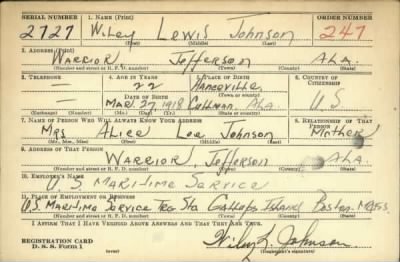 SERIAL NUMBER 1. NAME (Print) ORDER NUMBER
2727 Wiley Lewis Johnson 247
(First) (Middle) (Last)
2. ADDRESS (Print)
WARRIOR Jefferson ALA.
(Number and street or R. F. D. number) (Town) (County) (State)
3. TELEPHONE 4. AGE IN YEARS 5. PLACE OF BIRTH 6. COUNTRY OF CITIZENSHIP
— 22 Hanceville
DATE OF BIRTH (Town or county)
— MAR 27, 1918 Cullman, ALA U.S.
(Exchange) (Number) (Mo.) (Day) (Yr.) (State or country)
7. NAME OF PERSON WHO WILL ALWAYS KNOW YOUR ADDRESS 8. RELATIONSHIP OF THAT PERSON
Mrs Alice Lee Johnson Mother
(Mr., Mrs., Miss) (First) (Middle) (Last)
9. ADDRESS OF THAT PERSON
WARRIOR, Jefferson ALA.
(Number and street or R. F. D. number) (Town) (County) (State)
10. EMPLOYER'S NAME
U.S. Maritime Service
11. PLACE OF EMPLOYMENT OR BUSINESS
U.S. Maritime Service Trg Sta Gallups Island Boston Mass.
(Number and street or R. F. D. number) (Town) (County) (State)
I AFFIRM THAT I HAVE VERIFIED ABOVE ANSWERS AND THAT THEY ARE TRUE.
REGISTRATION CARD
D. S. S. Form 1 Wiley L. Johnson
(Registrant's signature)